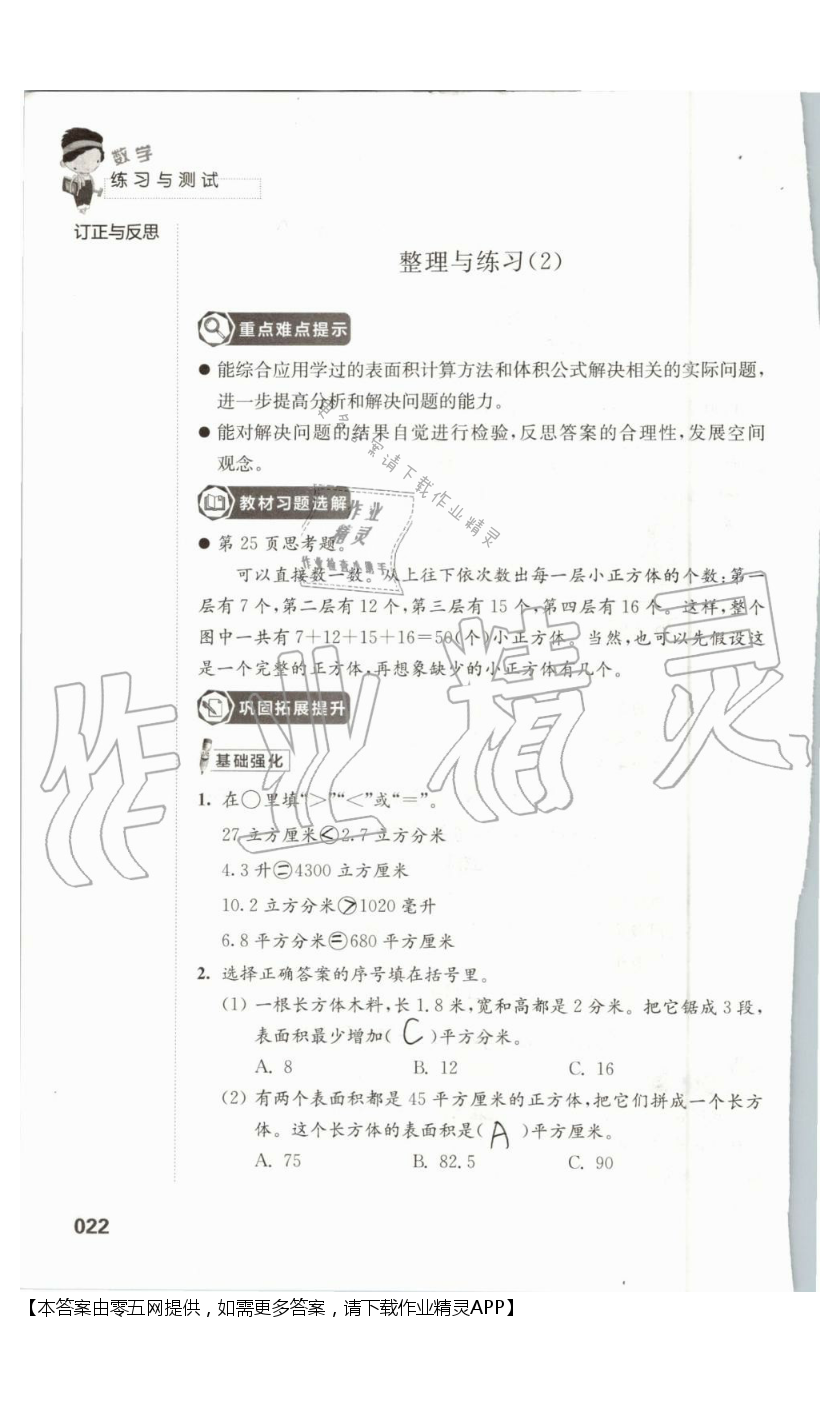 数学
练习与测试
订正与反思
整理与练习(2)
重点难点提示
● 能综合应用学过的表面积计算方法和体积公式解决相关的实际问题,
进一步提高分析和解决问题的能力。
● 能对解决问题的结果自觉进行检验,反思答案的合理性,发展空间
观念。
教材习题选解
● 第 25 页思考题。
可以直接数一数。从上往下依次数出每一层小正方体的个数:第一
层有 7 个,第二层有 12 个,第三层有 15 个,第四层有 16 个。这样,整个
图中一共有 7+12+15+16=50(个)小正方体。当然,也可以先假设这
是一个完整的正方体,再想象缺少的小正方体有几个。
巩固拓展提升
基础强化
1. 在○里填“>”“<”或“=”。
27 立方厘米<2.7 立方分米
4.3 升=4300 立方厘米
10.2 立方分米>1020 毫升
6.8 平方分米=680 平方厘米
2. 选择正确答案的序号填在括号里。
(1) 一根长方体木料,长 1.8 米,宽和高都是 2 分米。把它锯成 3 段,
表面积最少增加( C )平方分米。
A. 8 B. 12 C. 16
(2) 有两个表面积都是 45 平方厘米的正方体,把它们拼成一个长方
体。这个长方体的表面积是( A )平方厘米。
A. 75 B. 82.5 C. 90
022
作业精灵
作业
精灵
作业检查小助手
【本答案由零五网提供，如需更多答案，请下载作业精灵APP】